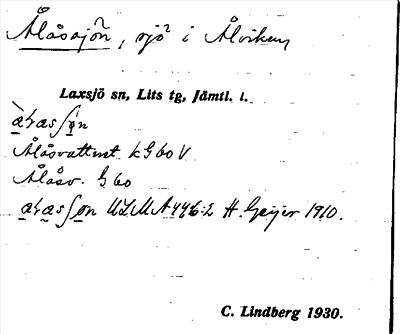 Ålåssjön, sjö i Ålviken
Laxsjö sn, Lits tg, Jämtl. l.
Ålåsvattnet k G 60 V
Ålåsv. G 60
ULMA 446:2 H. Geijer 1910.
C. Lindberg 1930.